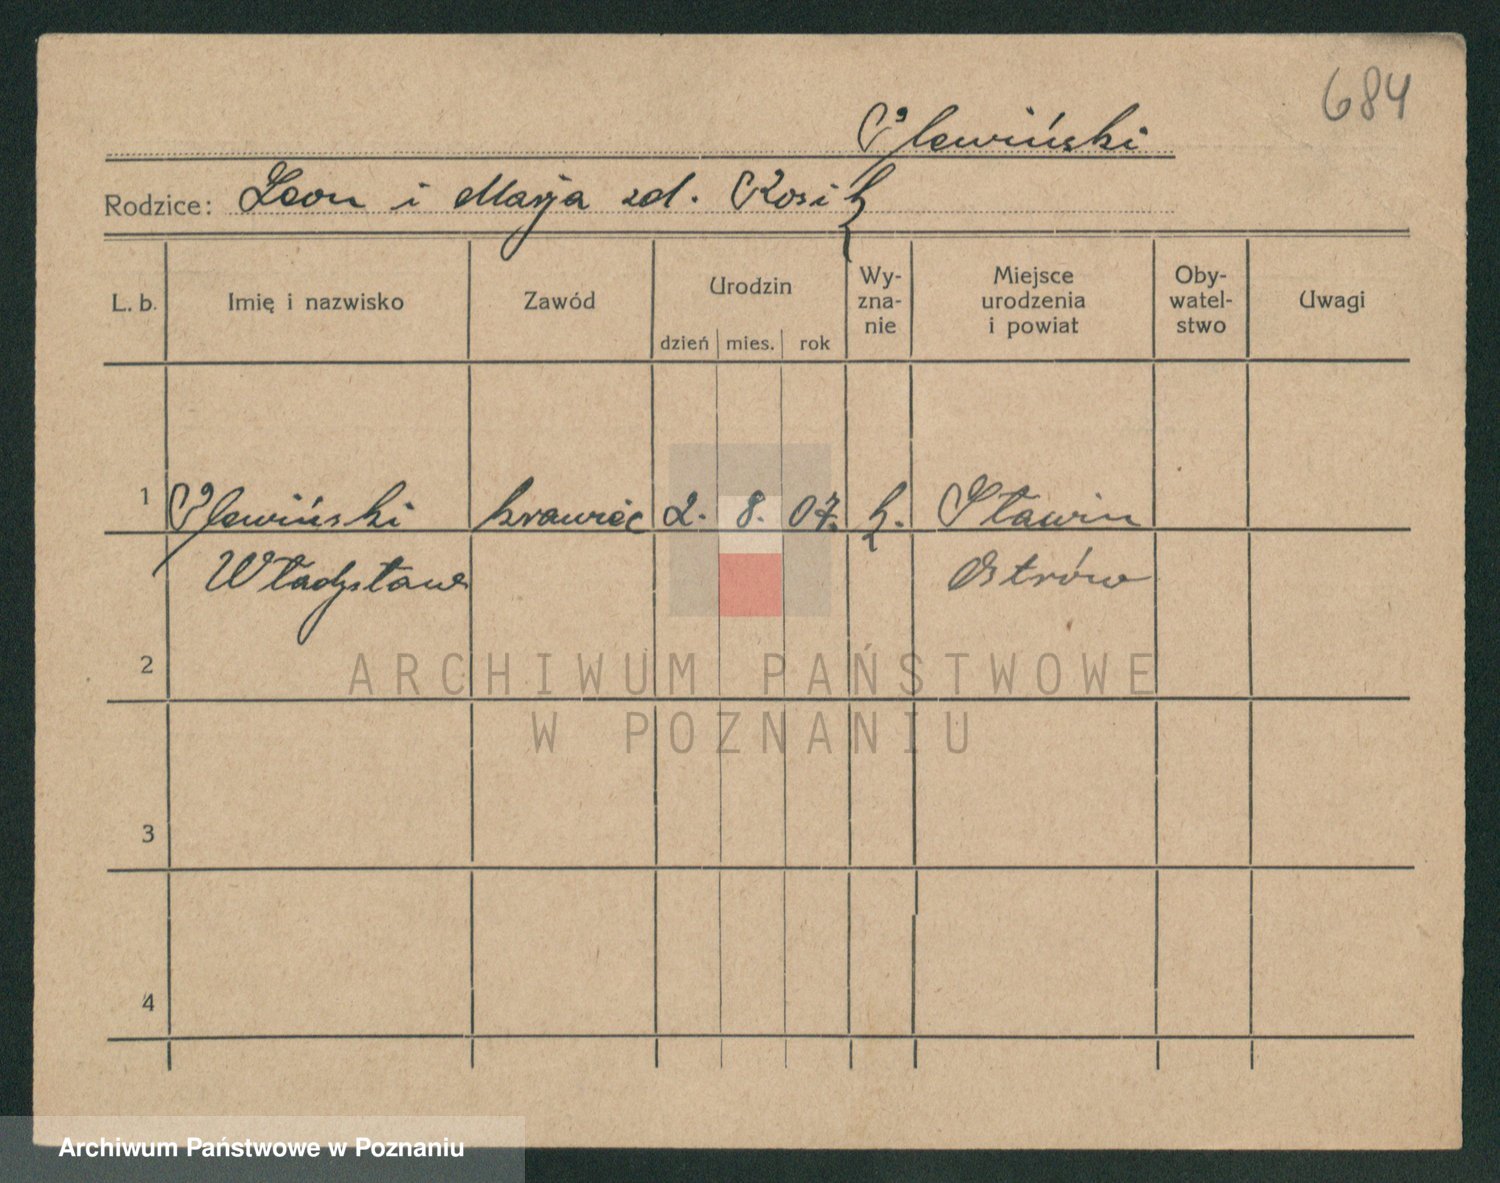 684
Plewiński
Rodzice: Leon i Marja zd. Kosik
L. b.
Imię i nazwisko
Zawód
Urodzin
dzień
mies.
rok
Wy-
zna-
nie
Miejsce
urodzenia
i powiat
Oby-
watel-
stwo
Uwagi
1 Plewiński krawiec 2. 8. 07. k. Sławin
Władysław Ostrów
2
ARCHIWUM PAŃSTWOWE
W POZNANIU
3
4
Archiwum Państwowe w Poznaniu